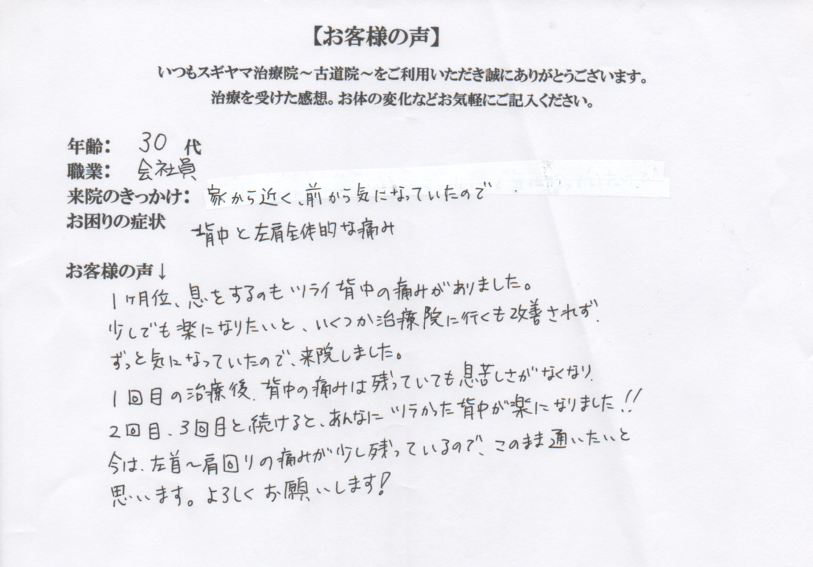 【お客様の声】
いつもスギヤマ治療院～古道院～をご利用いただき誠にありがとうございます。
治療を受けた感想。お体の変化などお気軽にご記入ください。
年齢： 30 代
職業： 会社員
来院のきっかけ： 家から近く、前から気になっていたので
お困りの症状 背中と左肩全体的な痛み
お客様の声↓
1ヶ月位、息をするのもツライ背中の痛みがありました。
少しでも楽になりたいと、いくつか治療院に行くも改善されず、
ずっと気になっていたので、来院しました。
1回目の治療後、背中の痛みは残っていても息苦しさがなくなり、
2回目、3回目と続けると、あんなにツラかった背中が楽になりました!!
今は、左首～肩回りの痛みが少し残っているので、このまま通いたいと
思います。よろしくお願いします!